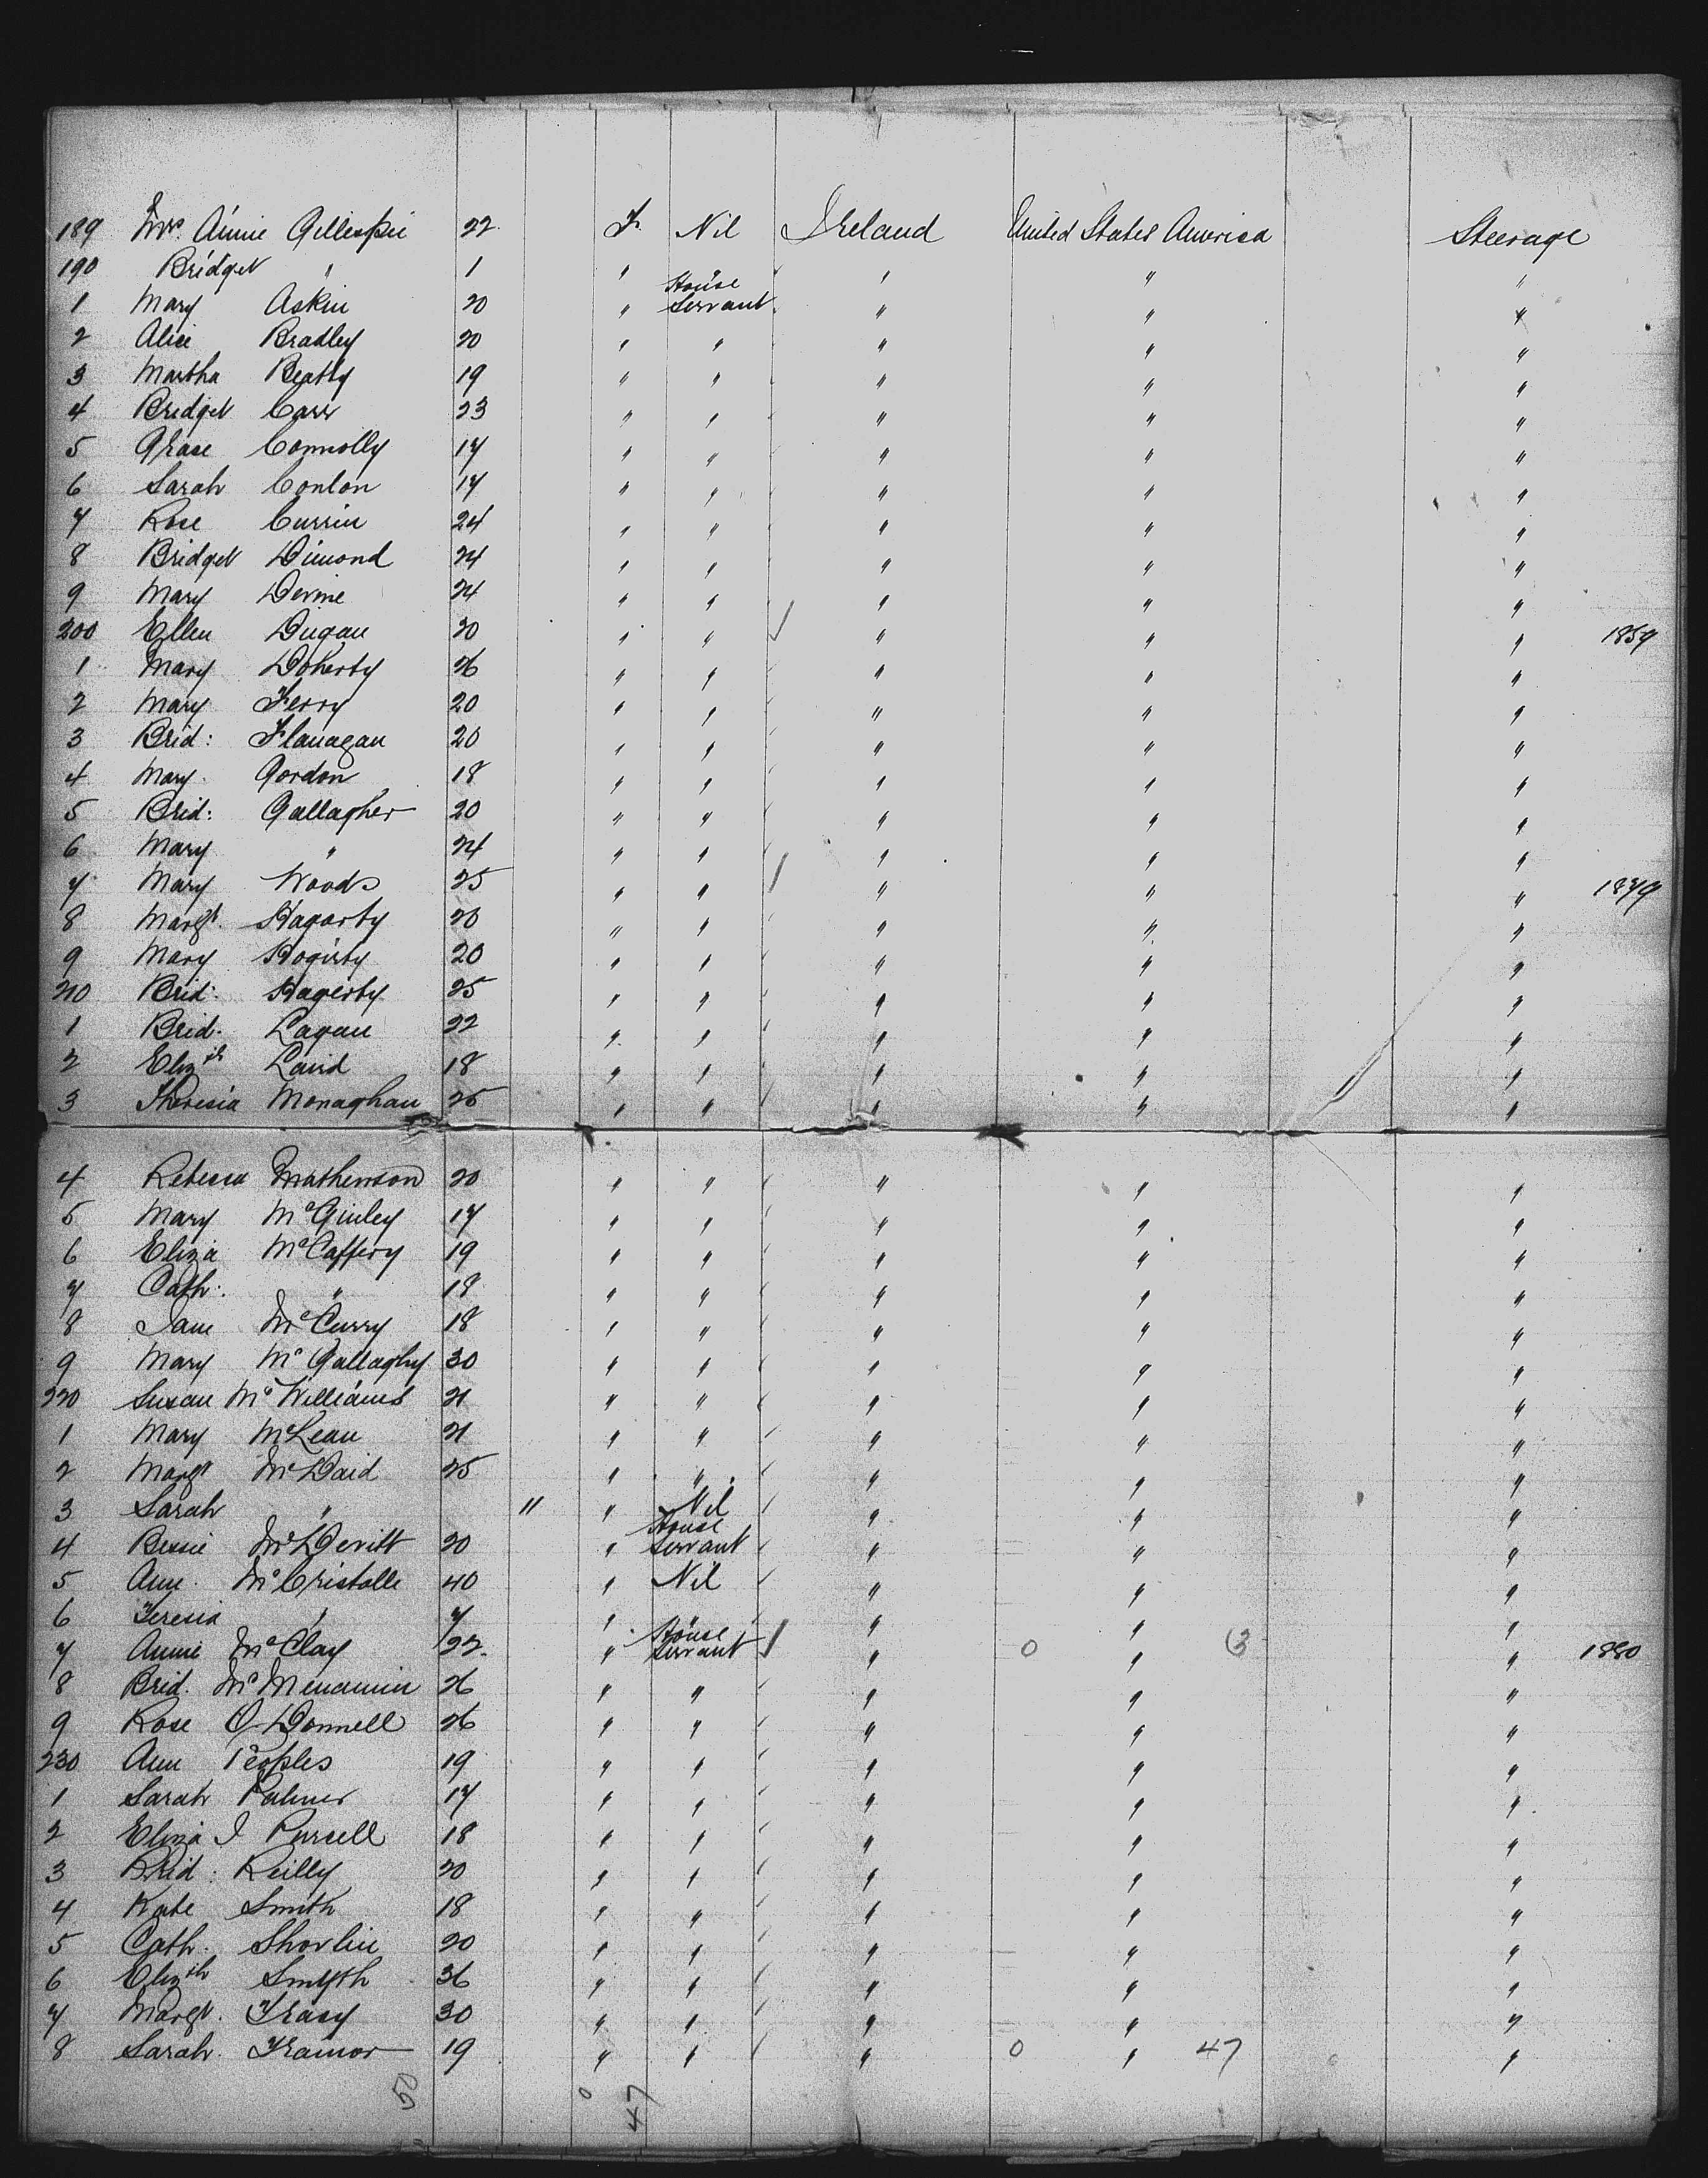 189 Mrs. Annie Gillespie 22 F. Nil Ireland United States America Steerage
190 Bridget " 1 " " " " "
1 Mary Askin 20 " House Servant " " "
2 Alice Bradley 20 " " " " "
3 Martha Beatty 19 " " " " "
4 Bridget Carr 23 " " " " "
5 Grace Connolly 17 " " " " "
6 Sarah Conlon 17 " " " " "
7 Rose Currin 24 " " " " "
8 Bridget Dimond 24 " " " " "
9 Mary Devine 24 " " " " "
200 Ellen Dugan 30 " " " " "
1 Mary Doherty 26 " " " " "
2 Mary Ferry 20 " " " " "
3 Brid: Flanagan 20 " " " " "
4 Mary Gordon 18 " " " " "
5 Brid: Gallagher 20 " " " " "
6 Mary " 24 " " " " "
7 Mary Woods 25 " " " " " 1879
8 Margt. Hagarty 20 " " " " "
9 Mary Hogirty 20 " " " " "
210 Brid: Hagerty 25 " " " " "
1 Brid. Lagan 22 " " " " "
2 Elizth Laird 18 " " " " "
3 Theresia Monaghan 25 " " " " "
4 Rebecca Mathewson 20 " " " " "
5 Mary McGinley 17 " " " " "
6 Eliza McCaffery 19 " " " " "
7 Cath: " 18 " " " " "
8 Jane McCurry 18 " " " " "
9 Mary McGallaghy 30 " " " " "
220 Susan McWilliams 21 " " " " "
1 Mary McLean 21 " " " " "
2 Margt McDaid 25 " " " " "
3 Sarah " 11 " Nil " " "
4 Bessie McDevitt 20 " House Servant " " "
5 Ann McCristalle 40 " Nil " " "
6 Teresia " 7 " " " " "
7 Annie McClay 22 " House Servant " 0 " 3 " 1880
8 Brid. McMenamin 26 " " " " "
9 Rose O'Donnell 26 " " " " "
230 Ann Peoples 19 " " " " "
1 Sarah Palmer 17 " " " " "
2 Eliza J Pursell 18 " " " " "
3 Brid: Reilly 20 " " " " "
4 Kate Smith 18 " " " " "
5 Cath. Shorlin 20 " " " " "
6 Elizth Smyth 36 " " " " "
7 Margt. Tracy 30 " " " " "
8 Sarah. Trainor 19 " " " 0 " 47 "
50 0 47